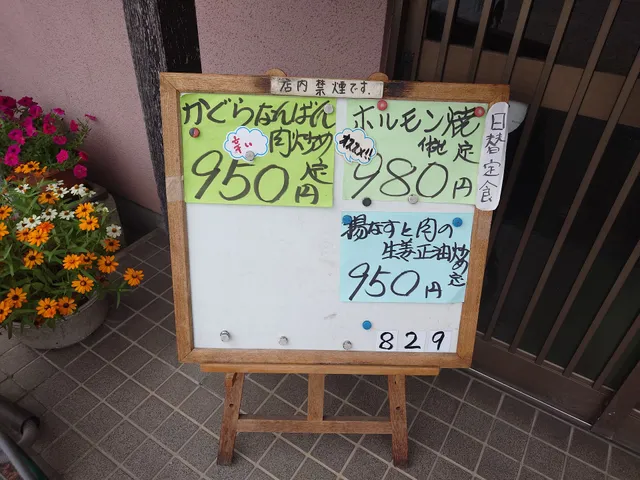 店内禁煙です.
かぐらなんばん
辛い
肉炒め
定
950円
ホルモン焼
オススメ!!
定
980円
日替定食
揚なすと肉の
生姜正油炒め
定
950円
829